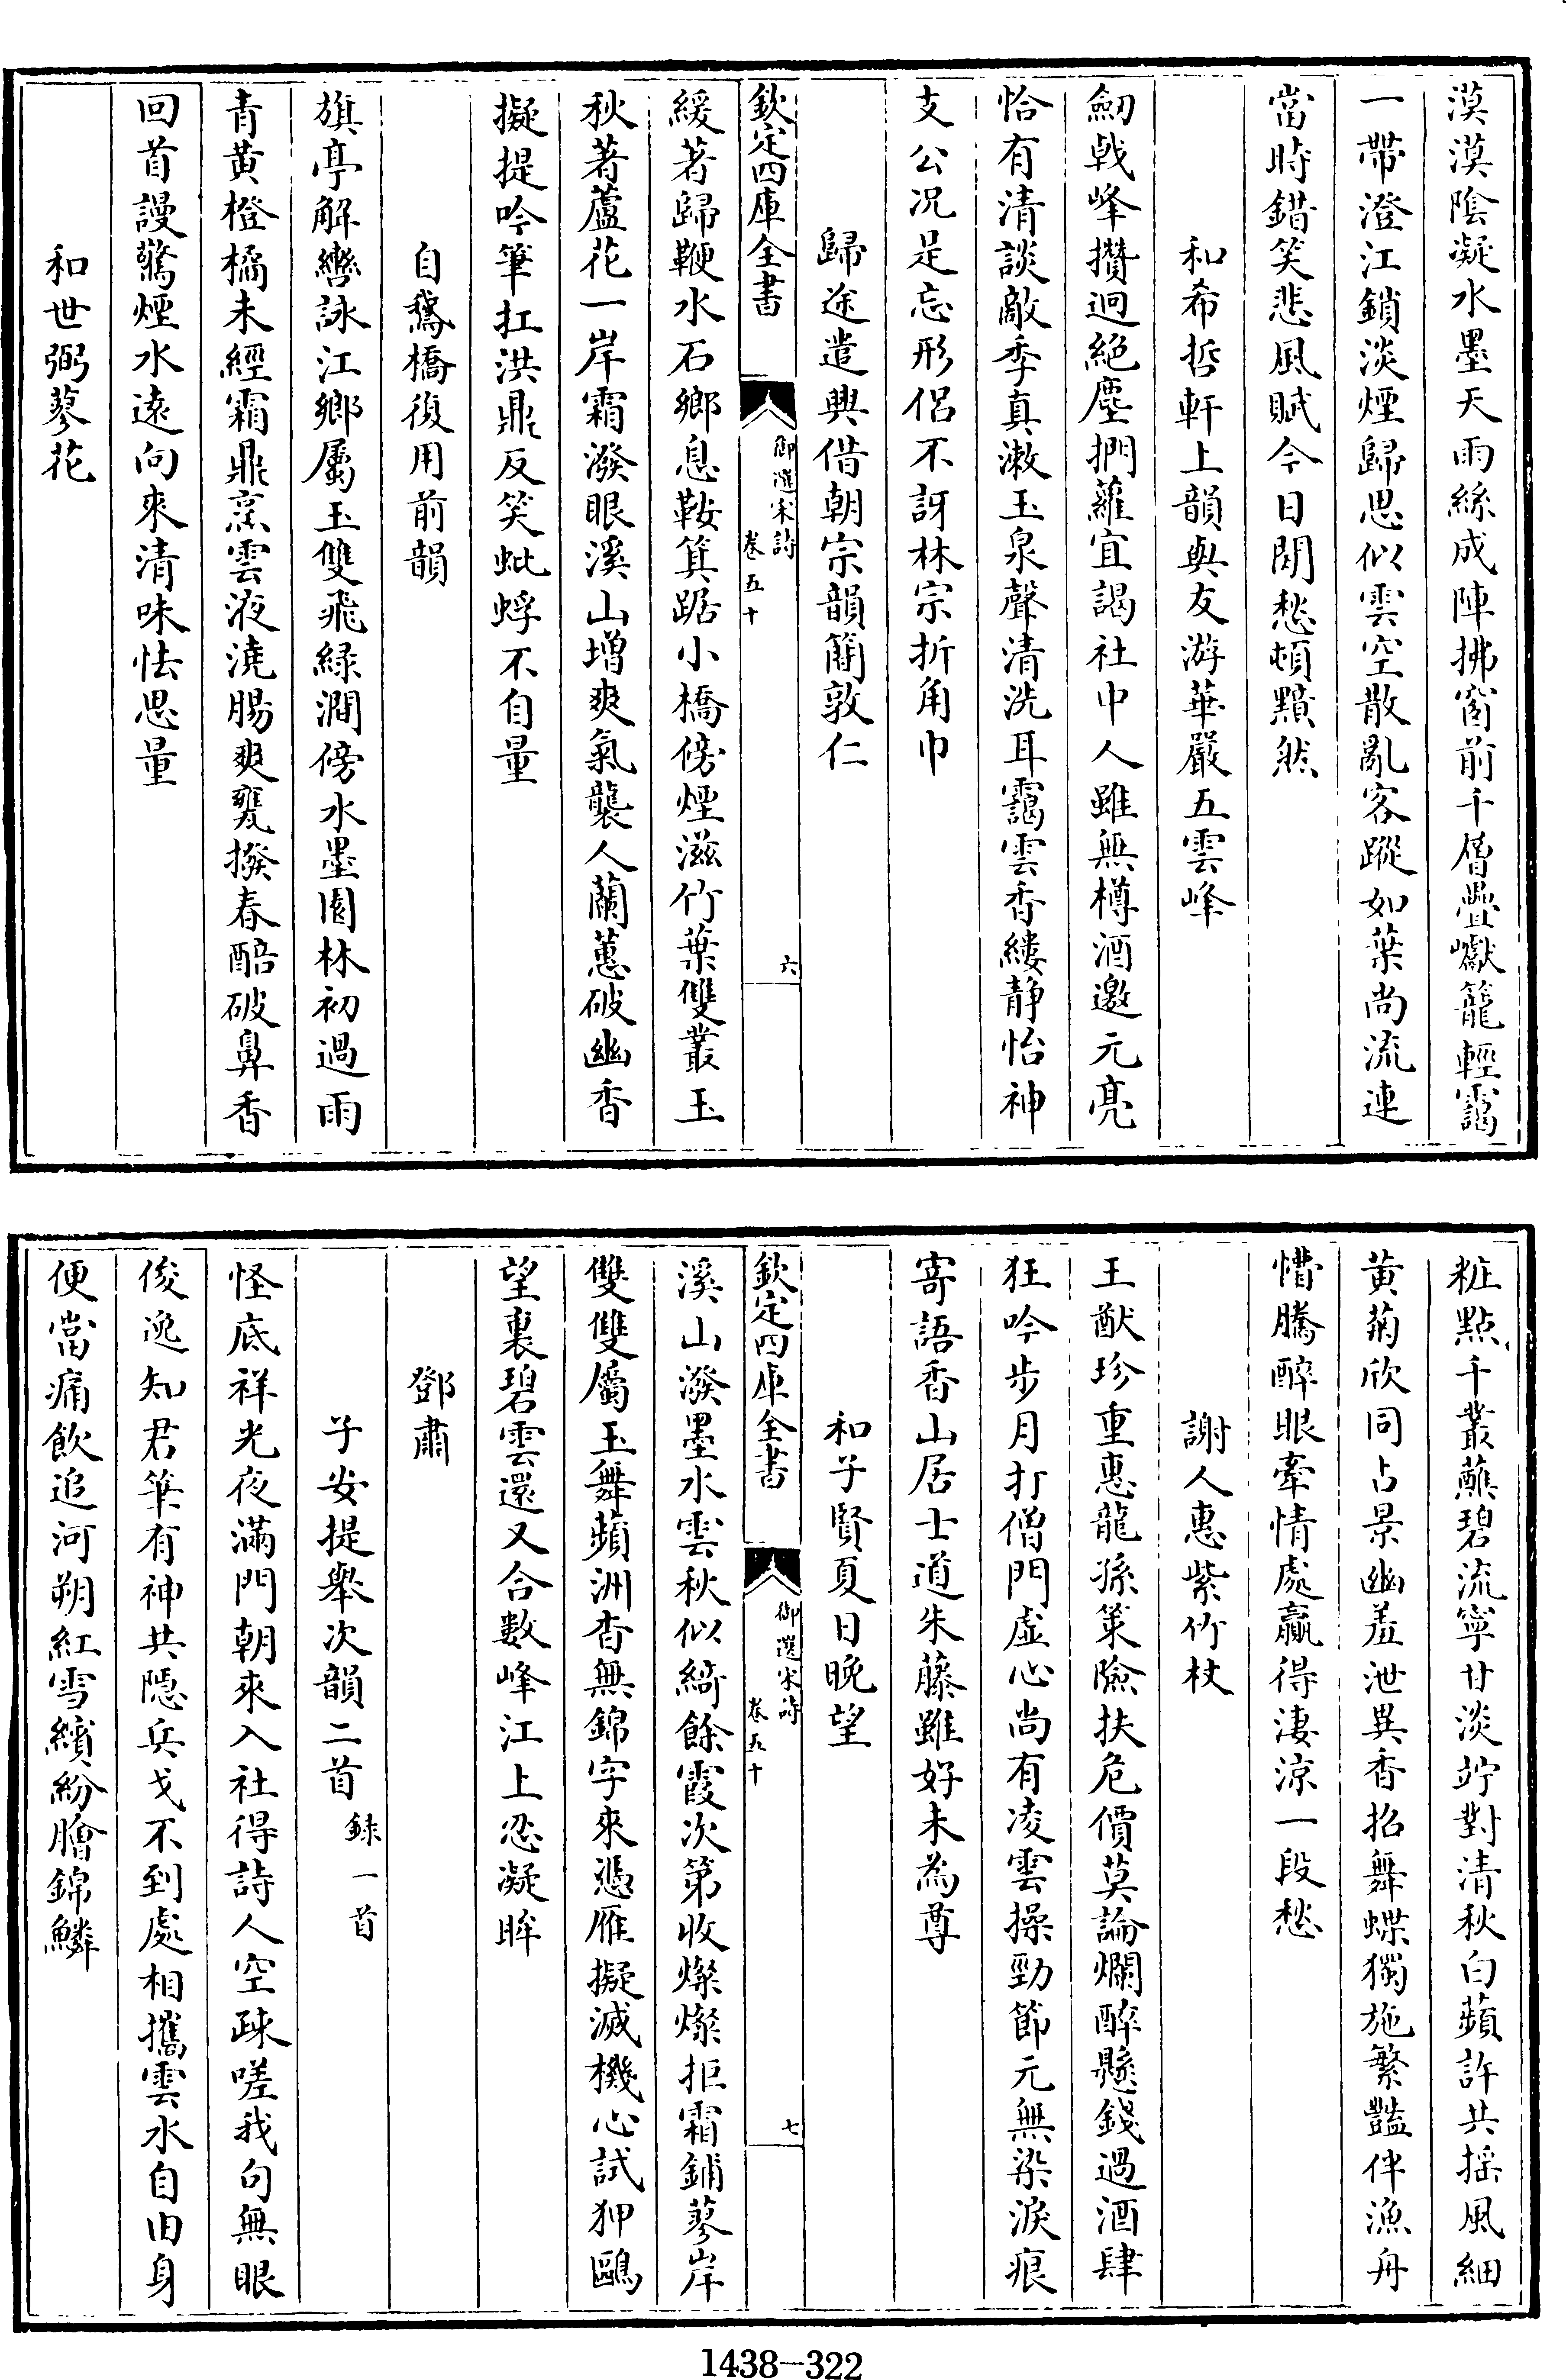 漠漠陰凝水墨天雨絲成陣拂窗前千層疊巘籠輕靄
一帶澄江鎖淡煙歸思似雲空散亂客蹤如葉尚流連
當時錯笑悲風賦今日閒愁頓黯然
和希哲軒上韻與友游華嚴五雲峰
劒戟峰攢迥絕塵捫蘿宜謁社中人雖無樽酒邀元亮
恰有清談敵季真漱玉泉聲清洗耳靄雲香縷静怡神
支公况足忘形侶不訝林宗折角巾
歸途遣興借朝宗韻簡敦仁
欽定四庫全書
御選宋詩
卷五十
六
緩著歸鞭水石鄉息鞍箕踞小橋傍煙滋竹葉雙叢玉
秋著蘆花一岸霜潑眼溪山增爽氣襲人蘭蕙破幽香
擬提吟筆扛洪鼎反笑蚍蜉不自量
自鵞橋復用前韻
旗亭解轡詠江鄉屬玉雙飛緑澗傍水墨園林初過雨
青黃橙橘未經霜鼎烹雲液澆腸爽甕撥春醅破鼻香
回首謾驚煙水遠向來清味怯思量
和世弼蓼花
粧點千叢蘸碧流寧甘淡竚對清秋白蘋許共搖風細
黃菊欣同占景幽羞泄異香招舞蝶獨施繁豔伴漁舟
懵騰醉眼牽情處贏得淒涼一段愁
謝人惠紫竹杖
王猷珍重惠龍孫策險扶危價莫論爛醉懸錢過酒肆
狂吟步月打僧門虛心尚有凌雲操勁節元無染淚痕
寄語香山居士道朱藤雖好未為尊
和子賢夏日晚望
欽定四庫全書
御選宋詩
卷五十
七
溪山潑墨水雲秋似綺餘霞次第收燦燦拒霜鋪蓼岸
雙雙屬玉舞蘋洲杳無錦字來憑雁擬滅機心試狎鷗
望裏碧雲還又合數峰江上忍凝眸
鄧肅
子安提舉次韻二首錄一首
怪底祥光夜滿門朝來入社得詩人空疎嗟我句無眼
俊逸知君筆有神共隱兵戈不到處相攜雲水自由身
便當痛飲追河朔紅雪繽紛膾錦鱗
1438—322